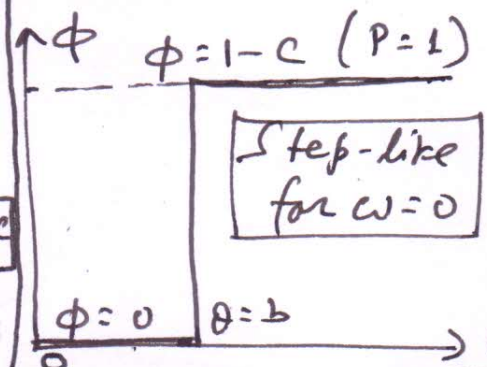 ϕ
ϕ=1-c (P=1)
Step-like
for ω=0
ϕ=0 θ=b
0